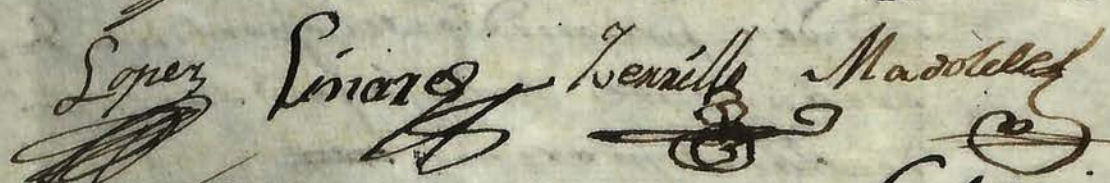 Lopez Linares Zorrilla Madolell